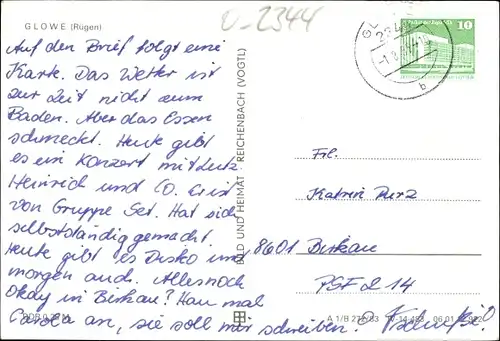 GLOWE (Rügen)
0-2344
Auf den Brief folgt eine
Karte. Das Wetter ist
zur Zeit nicht zum
Baden. Aber das Essen
schmeckt. Heute gibt
es ein Konzert mit Lutz
Heinrich und Co. Er ist
von Gruppe Set. Hat sich
selbstständig gemacht.
Heute gibt es Disko und
morgen auch. Alles noch
Okay in Birkau? Hau mal
Carola an, sie soll mir schreiben!
BILD UND HEIMAT REICHENBACH (VOGTL)
10
2344
b
Frl.
Katrin Purz
8601 Birkau
PSF d 14
A 1/B